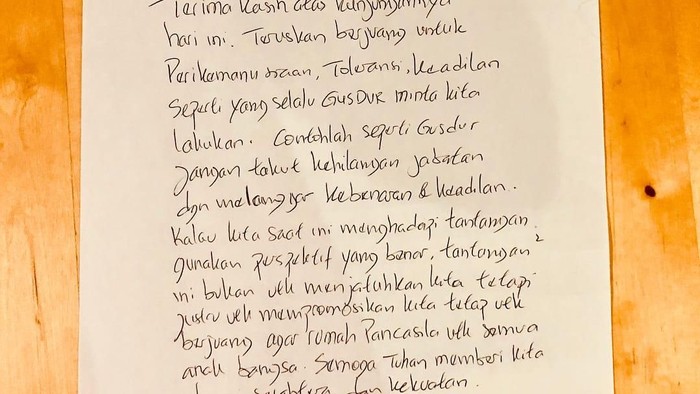 Terima kasih atas kunjungannya
hari ini. Teruskan berjuang untuk
Perikemanusiaan, Toleransi, keadilan
seperti yang selalu GUSDUR minta kita
lakukan. Contohlah seperti Gusdur
jangan takut kehilangan jabatan
dgn melanggar kebenaran & keadilan.
Kalau kita saat ini menghadapi tantangan
gunakan perspektif yang benar, tantangan²
ini bukan utk menjatuhkan kita tetapi
justru utk mempromosikan kita tetap utk
berjuang agar rumah Pancasila utk semua
anak bangsa. Semoga Tuhan memberi kita
sejahtera dan kekuatan.